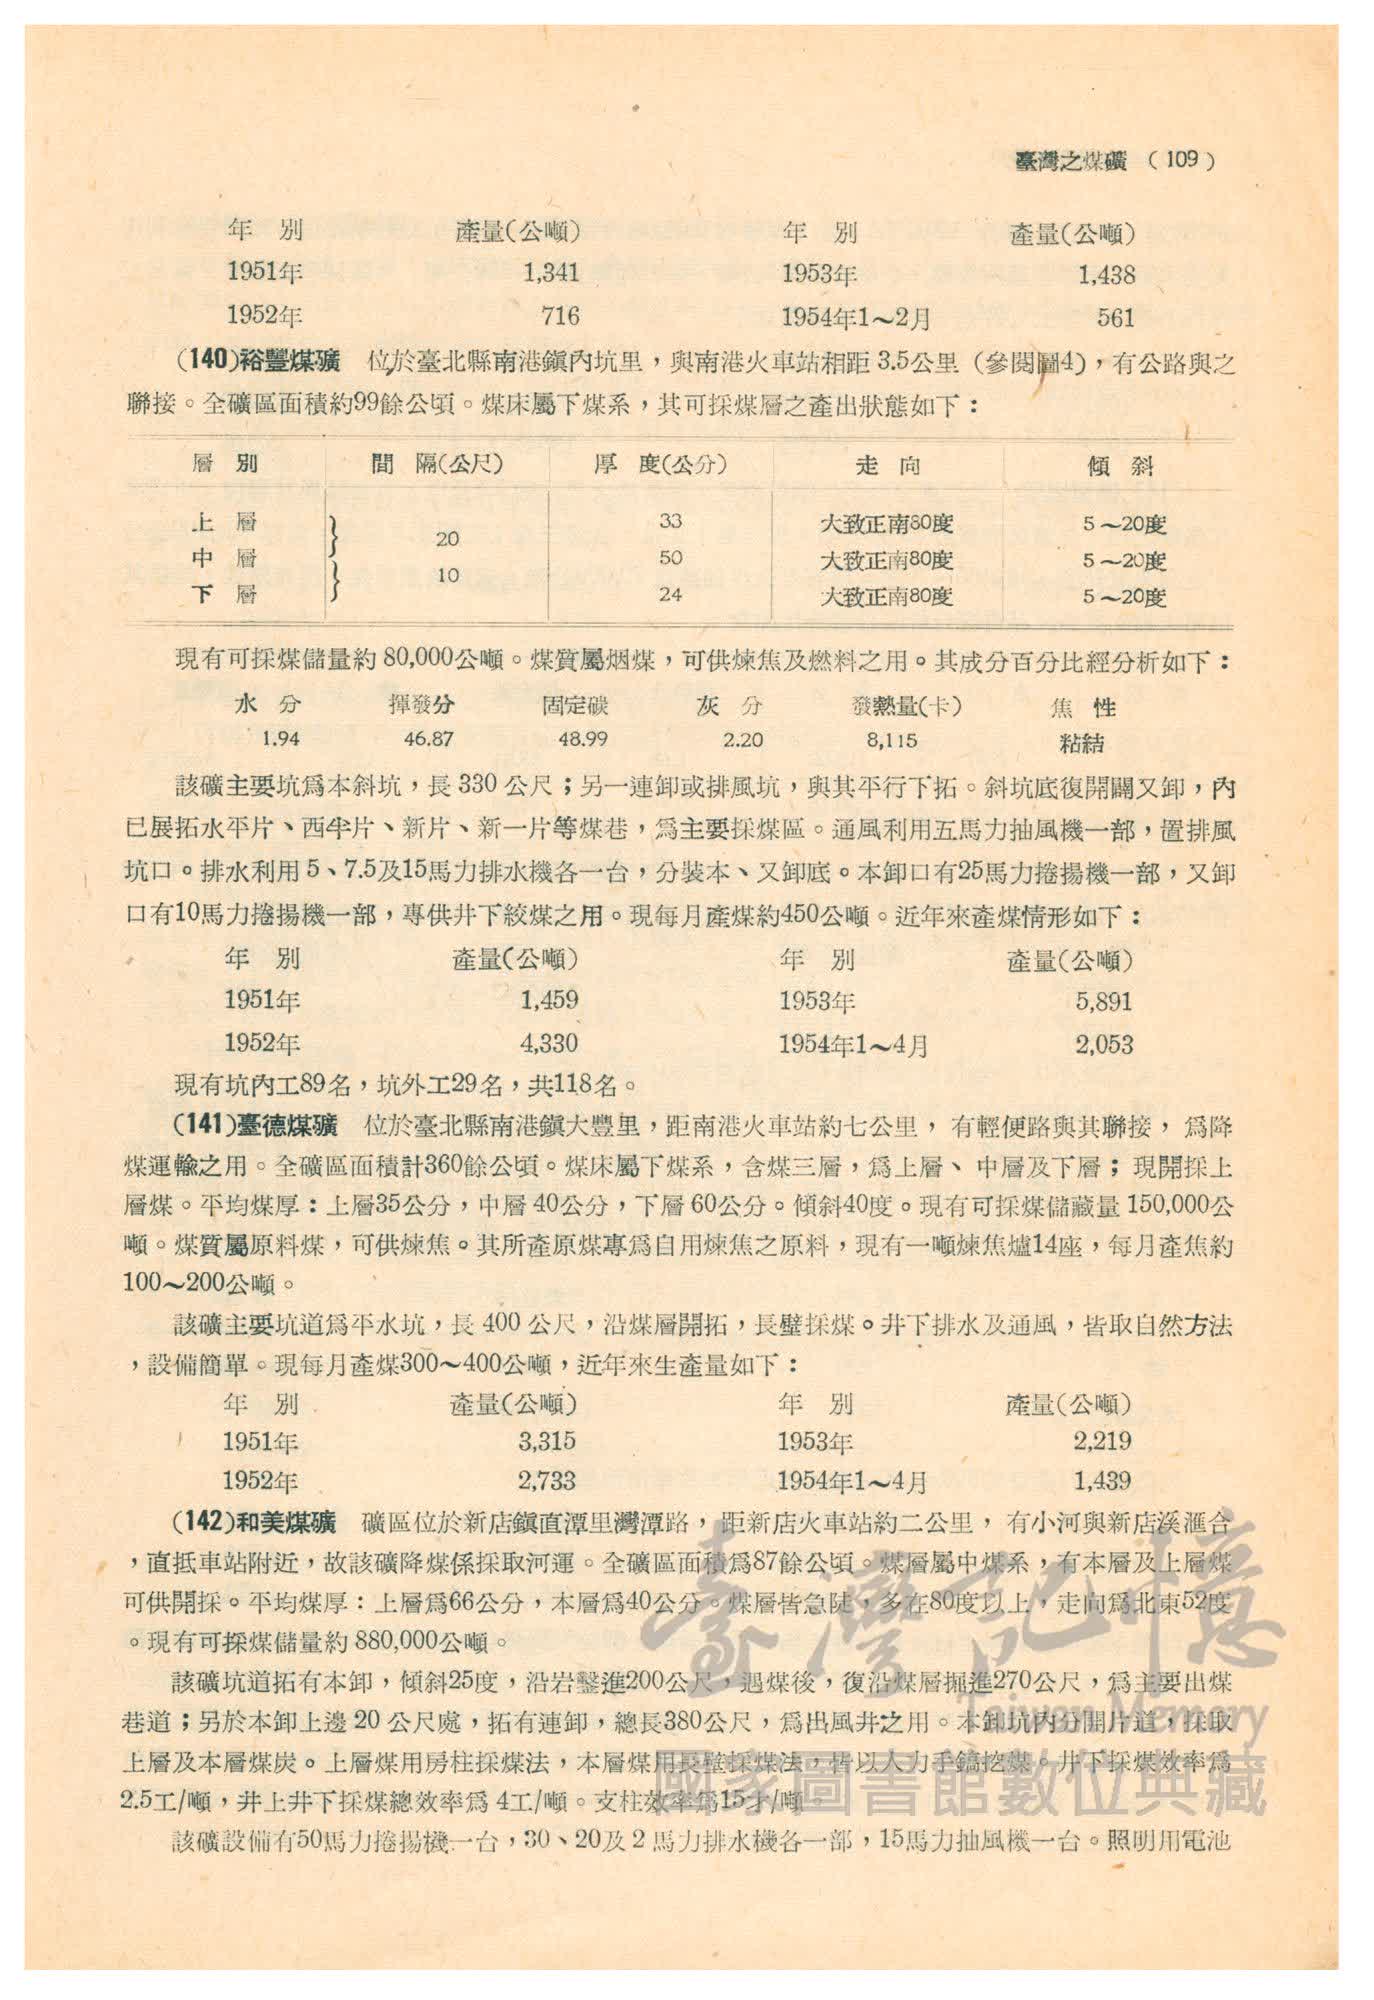 臺灣之煤礦 (109)
年 別 產量(公噸) 年 別 產量(公噸)
1951年 1,341 1953年 1,438
1952年 716 1954年1～2月 561
(140)裕豐煤礦 位於臺北縣南港鎭內坑里，與南港火車站相距 3.5公里 (參閱圖4)，有公路與之
聯接。全礦區面積約99餘公頃。煤床屬下煤系，其可採煤層之產出狀態如下：
層 別 間 隔(公尺) 厚 度(公分) 走 向 傾 斜
上 層 33 大致正南80度 5～20度
20
中 層 50 大致正南80度 5～20度
10
下 層 24 大致正南80度 5～20度
現有可採煤儲量約 80,000公噸。煤質屬烟煤，可供煉焦及燃料之用。其成分百分比經分析如下：
水 分 揮發分 固定碳 灰 分 發熱量(卡) 焦 性
1.94 46.87 48.99 2.20 8,115 粘結
該礦主要坑爲本斜坑，長 330 公尺；另一連卸或排風坑，與其平行下拓。斜坑底復開闢又卸，內
已展拓水平片、西半片、新片、新一片等煤巷，爲主要採煤區。通風利用五馬力抽風機一部，置排風
坑口。排水利用 5、7.5及15馬力排水機各一台，分裝本、又卸底。本卸口有25馬力捲揚機一部，又卸
口有10馬力捲揚機一部，專供井下絞煤之用。現每月產煤約450公噸。近年來產煤情形如下：
年 別 產量(公噸) 年 別 產量(公噸)
1951年 1,459 1953年 5,891
1952年 4,330 1954年1～4月 2,053
現有坑內工89名，坑外工29名，共118名。
(141)臺德煤礦 位於臺北縣南港鎭大豐里，距南港火車站約七公里，有輕便路與其聯接，爲降
煤運輸之用。全礦區面積計360餘公頃。煤床屬下煤系，含煤三層，爲上層、中層及下層；現開採上
層煤。平均煤厚：上層35公分，中層 40公分，下層 60公分。傾斜40度。現有可採煤儲藏量 150,000公
噸。煤質屬原料煤，可供煉焦。其所產原煤專爲自用煉焦之原料，現有一噸煉焦爐14座，每月產焦約
100～200公噸。
該礦主要坑道爲平水坑，長 400 公尺，沿煤層開拓，長壁採煤。井下排水及通風，皆取自然方法
，設備簡單。現每月產煤300～400公噸，近年來生產量如下：
年 別 產量(公噸) 年 別 產量(公噸)
1951年 3,315 1953年 2,219
1952年 2,733 1954年1～4月 1,439
(142)和美煤礦 礦區位於新店鎭直潭里灣潭路，距新店火車站約二公里，有小河與新店溪滙合
，直抵車站附近，故該礦降煤係採取河運。全礦區面積爲87餘公頃。煤層屬中煤系，有本層及上層煤
可供開採。平均煤厚：上層爲66公分，本層爲40公分。煤層皆急陡，多在80度以上，走向爲北東52度
。現有可採煤儲量約 880,000公噸。
該礦坑道拓有本卸，傾斜25度，沿岩鑿進200公尺，遇煤後，復沿煤層掘進270公尺，爲主要出煤
巷道；另於本卸上邊 20 公尺處，拓有連卸，總長380公尺，爲出風井之用。本卸坑內分開片道，採取
上層及本層煤炭。上層煤用房柱採煤法，本層煤用長壁採煤法，皆以人力手鎬挖煤。井下採煤效率爲
2.5工/噸，井上井下採煤總效率爲 4工/噸。支柱效率爲15才/噸。
該礦設備有50馬力捲揚機一台，30、20及 2 馬力排水機各一部，15馬力抽風機一台。照明用電池
臺灣記憶
Taiwan Memory
國家圖書館數位典藏